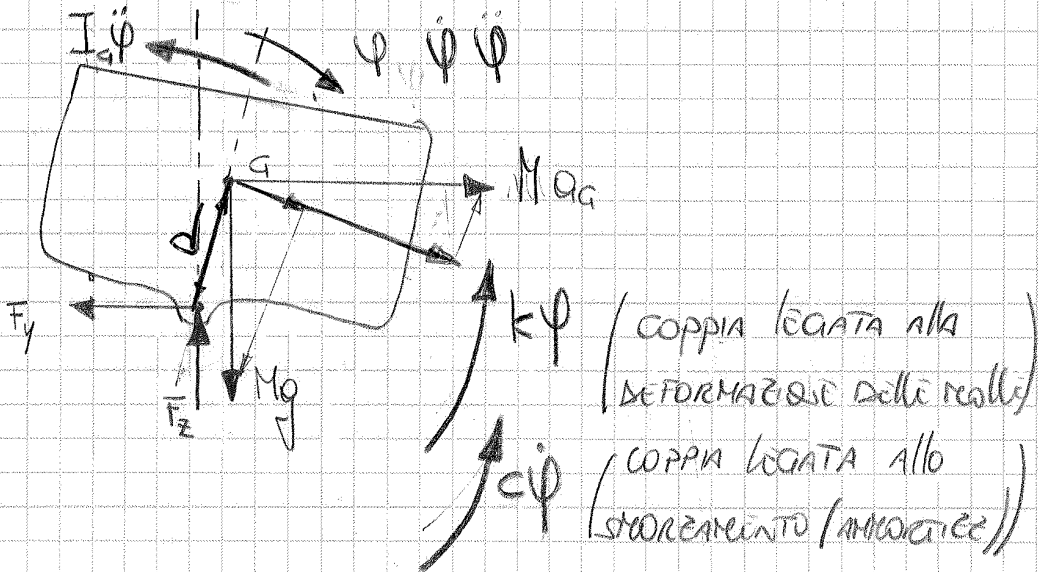 I_G φ̈
φ φ̇ φ̈
G
M a_G
d
F_y
kφ
(COPPIA LEGATA ALLA
DEFORMAZIONE DELLE MOLLE)
F_z
Mg
cφ̇
(COPPIA LEGATA ALLO
SMORZAMENTO (AMMORTIZZ))